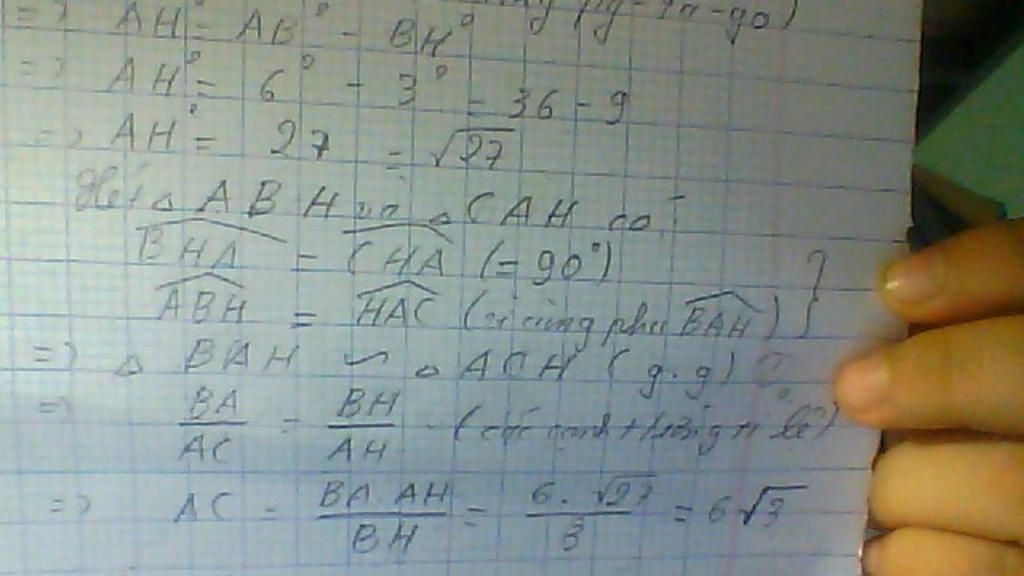 => AH² = AB² - BH²
=> AH² = 6² - 3² = 36 - 9
=> AH² = 27 = √27
Xét △ ABH và △ CAH có:
BHA = CHA (= 90°)
ABH = HAC (vì cùng phụ BAH) }
=> △ BAH ∽ △ ACH (g.g)
=> BA/AC = BH/AH (các cạnh t/ứng tỉ lệ)
=> AC = BA.AH/BH = 6.√27/3 = 6√3